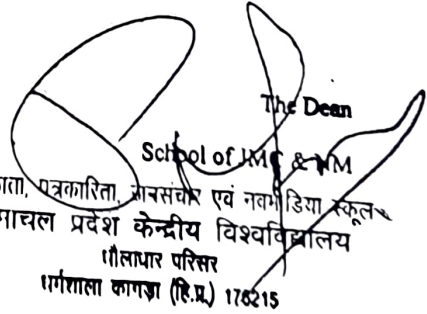 The Dean
School of JMC & NM
पत्रकारिता, जनसंचार एवं नवमीडिया स्कूल
प्रदेश केन्द्रीय विश्वविद्यालय
धौलाधार परिसर
धर्मशाला कागड़ा (हि.प्र.) 176215